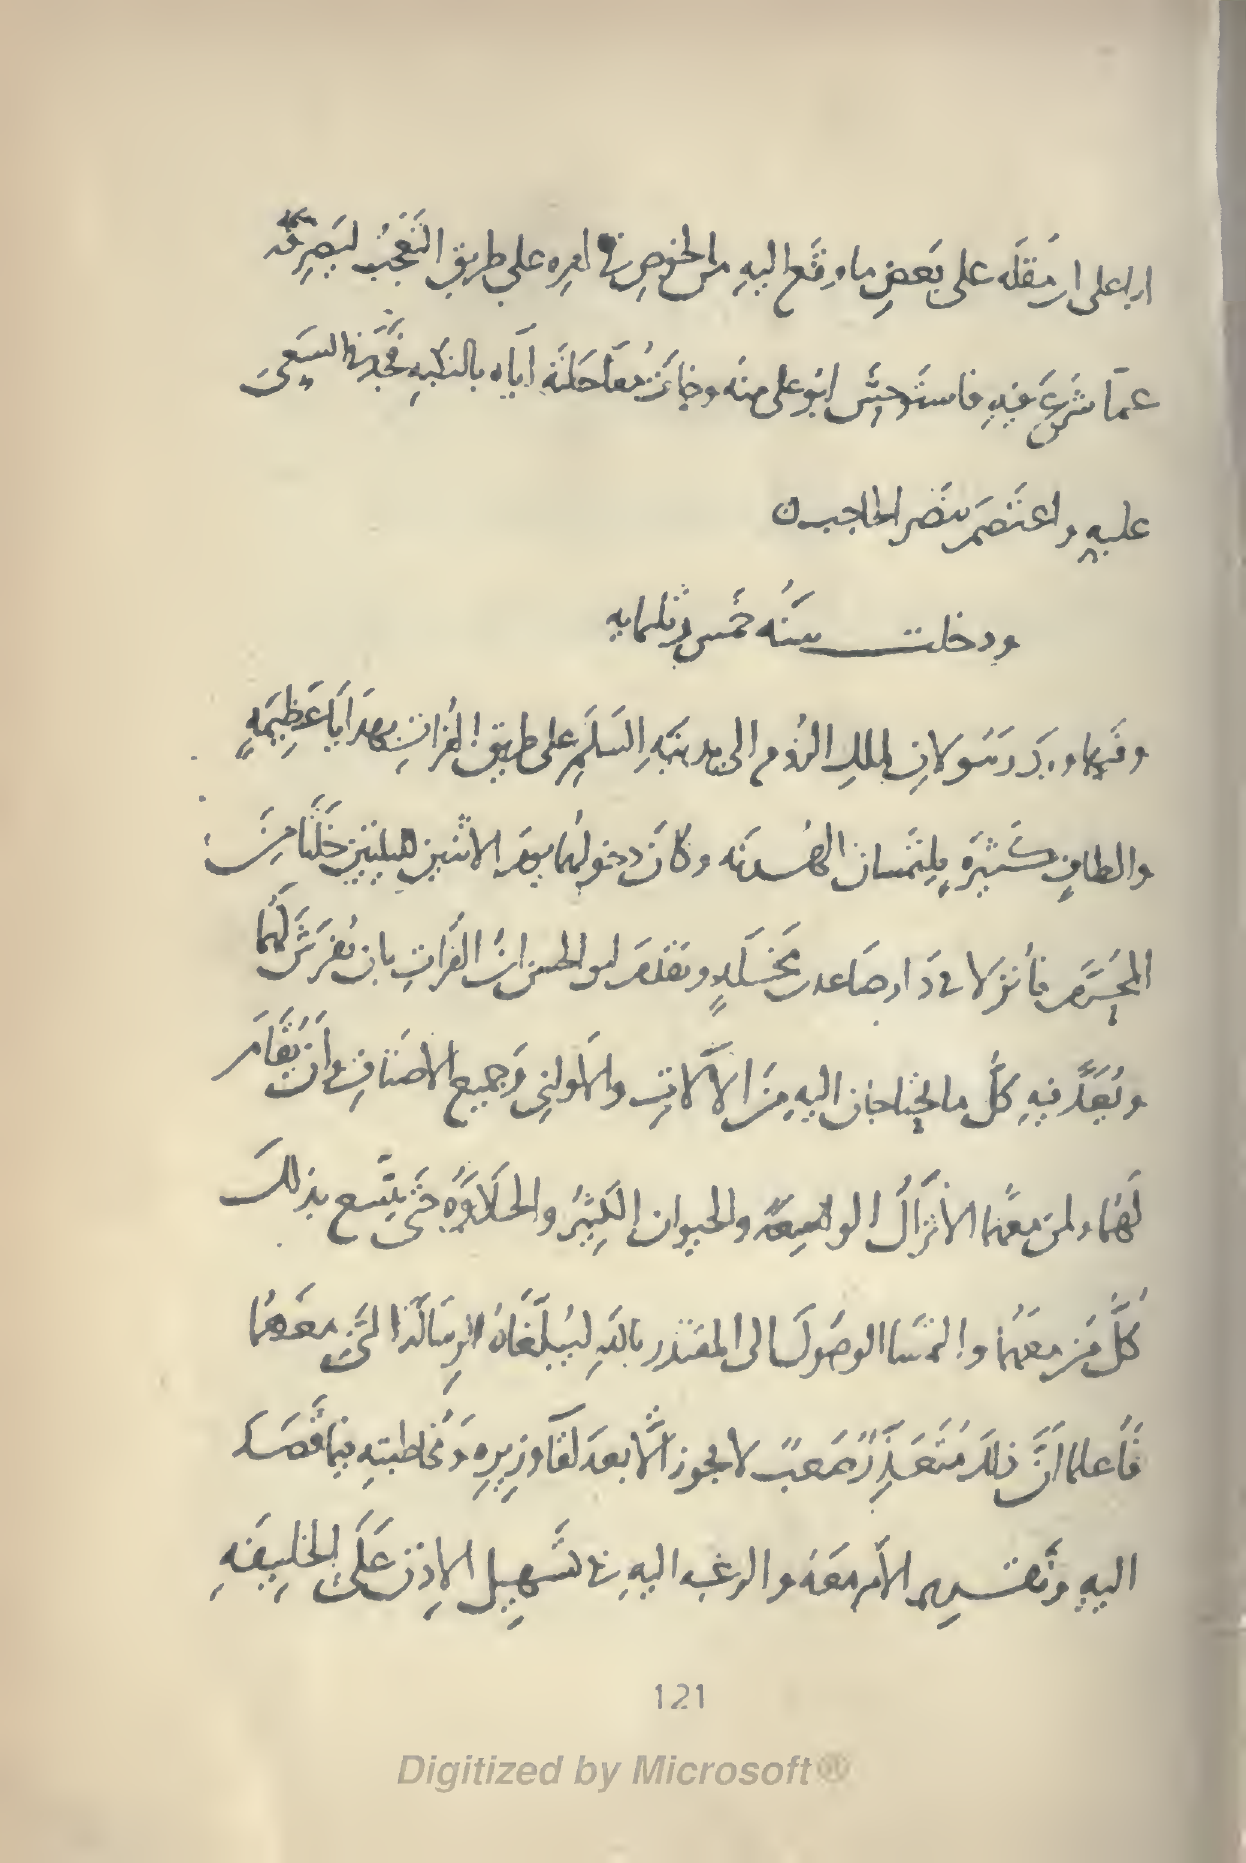 ابا على ابن مُقلَه على بَعضِ ما وقَع اليهِ من الخوضِ فى امرِه على طريقِ التَعَجُّبِ ليَصرِفَه
عمّا شَرَعَ فيهِ فاستَوحَشَ ابُو على منه وخافَ مُعاجَلتَه ايّاه بالنكبهِ فجَدَّ فى السَعىِ
عليهِ واعتَصَمَ بنَصر الحاجب
ودخلت سنَه خمس وثلثمايه
وفيها ورَدَ رَسُولانِ لملكِ الرُوم الى مدينهِ السَلمِ على طريق الفُراتِ بهَدَايَا عَظِيمَهٍ
والطافٍ كَثيرَهٍ يلتَمسان الهُدنَه وكانَ دخولُهُما يومَ الاثنين لليلتَينِ خَلَتَا مِنَ
المحَرَّمِ فأُنزلا فى دَار صَاعد بن مَخْلَدٍ وتقدّمَ ابو الحسن ابنُ الفُراتِ بان يُفرَشَ لهُما
ويُعَدَّ فيهِ كلُّ ما يحتاجان اليهِ مِنَ الآلاتِ والاوانِى وَجميع الاصنافِ وأن يُقَامَ
لَهُما ولمن معهُما الأنزالُ الواسِعَه والحيوان الكَثِيرُ والحَلَاوَهُ حَتّى يتَّسع بذلكَ
كلُّ مَن معَهُما والتَمسَا الوصُولَ الى المقتدر بالله ليُبلّغَاهُ الرِسَالَه التى معَهُما
فَأُعلما أنَّ ذلكَ مُتَعَذِّرٌ صَعبٌ لا يجوز الّا بعدَ لقآ وزيرِه وَمُخَاطبتِهِ فيمَا قَصَدَا
اليهِ وتقريرِ الأَمر معَهُ والرغبه اليهِ فى تَسهِيل الاِذنِ عَلَى الخلِيفَهِ
121
Digitized by Microsoft®